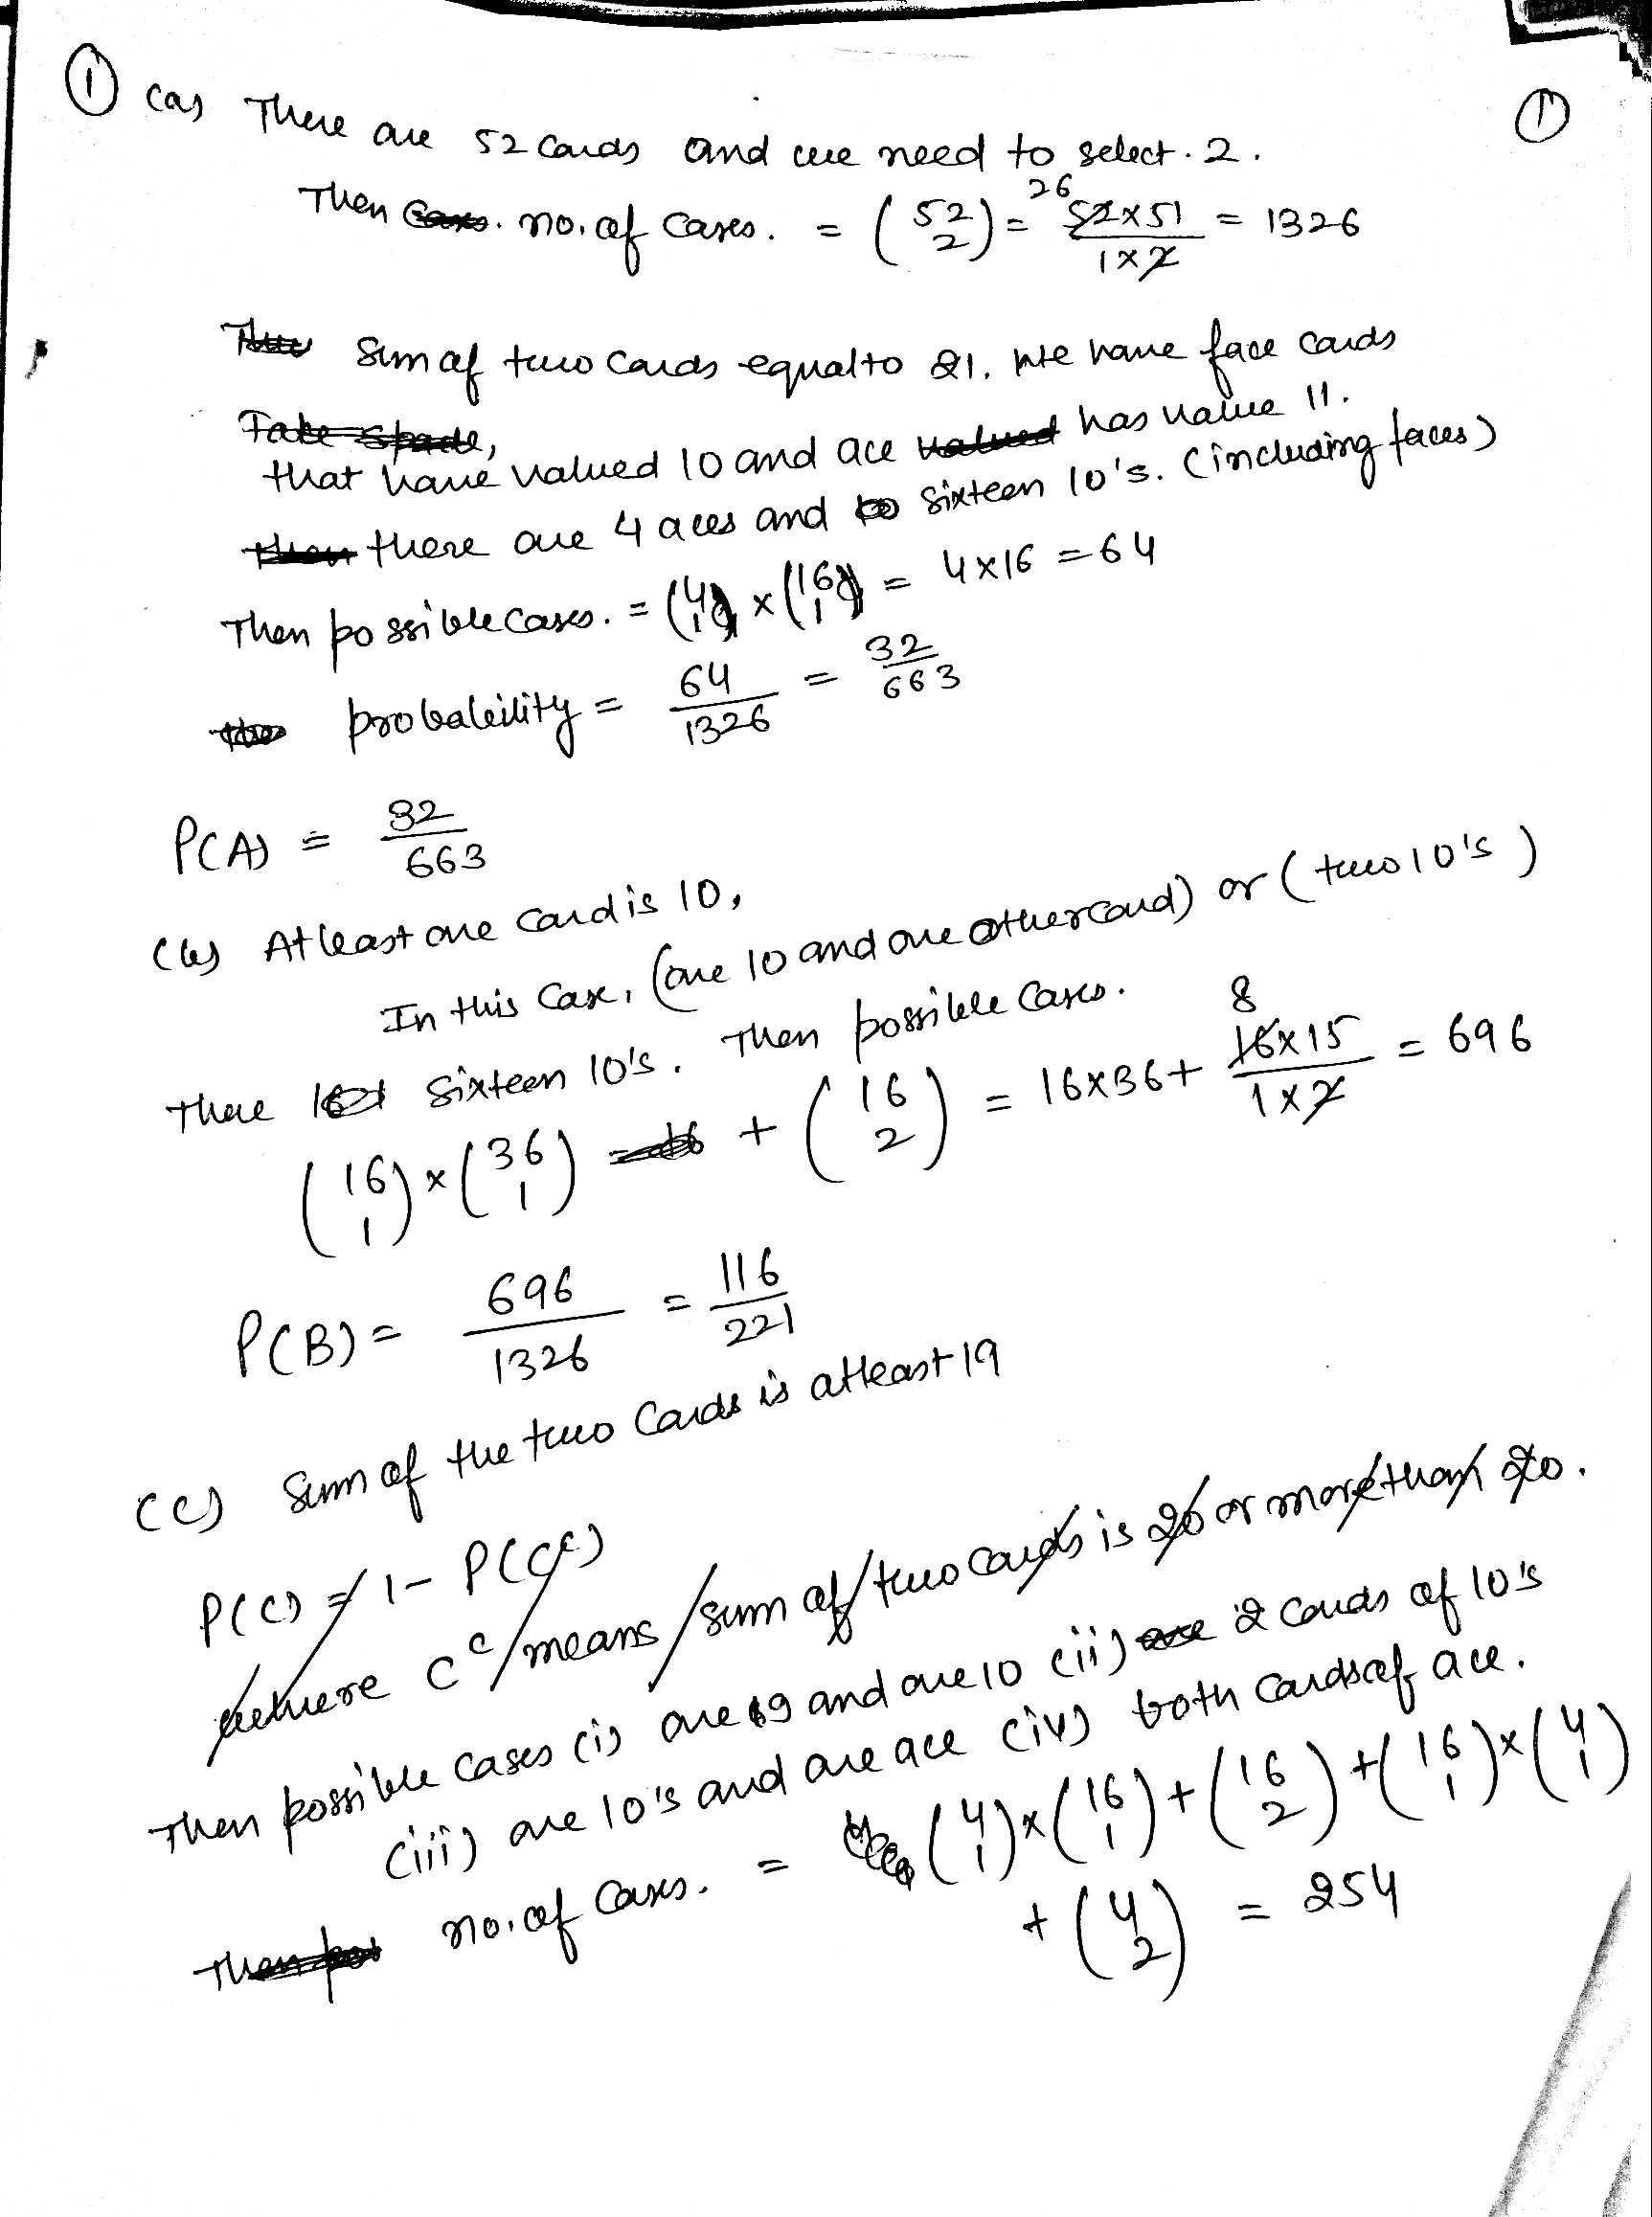 ① (a) There are 52 cards and we need to select 2. ①
Then no. of cases. = (52 2) = 26 52×51 / 1×2 = 1326
Sum of two cards equal to 21. We have face cards
Take spade,
that have valued 10 and ace valued has value 11.
then there are 4 aces and sixteen 10's. (including faces)
Then possible cases. = (4 1) × (16 1) = 4×16 = 64
probability = 64/1326 = 32/663
P(A) = 32/663
(b) Atleast one card is 10,
In this case, (one 10 and one other card) or (two 10's)
There sixteen 10's. Then possible cases.
(16 1) × (36 1) + (16 2) = 16×36 + 8 16×15 / 1×2 = 696
P(B) = 696/1326 = 116/221
(c) Sum of the two cards is atleast 19
P(C) = 1 - P(Cᶜ)
where Cᶜ means sum of two cards is 20 or more than 20.
Then possible cases (i) one 9 and one 10 (ii) are 2 cards of 10's
(iii) one 10's and one ace (iv) both cards of ace.
no. of cases. = (4 1) × (16 1) + (16 2) + (16 1) × (4 1)
+ (4 2) = 254